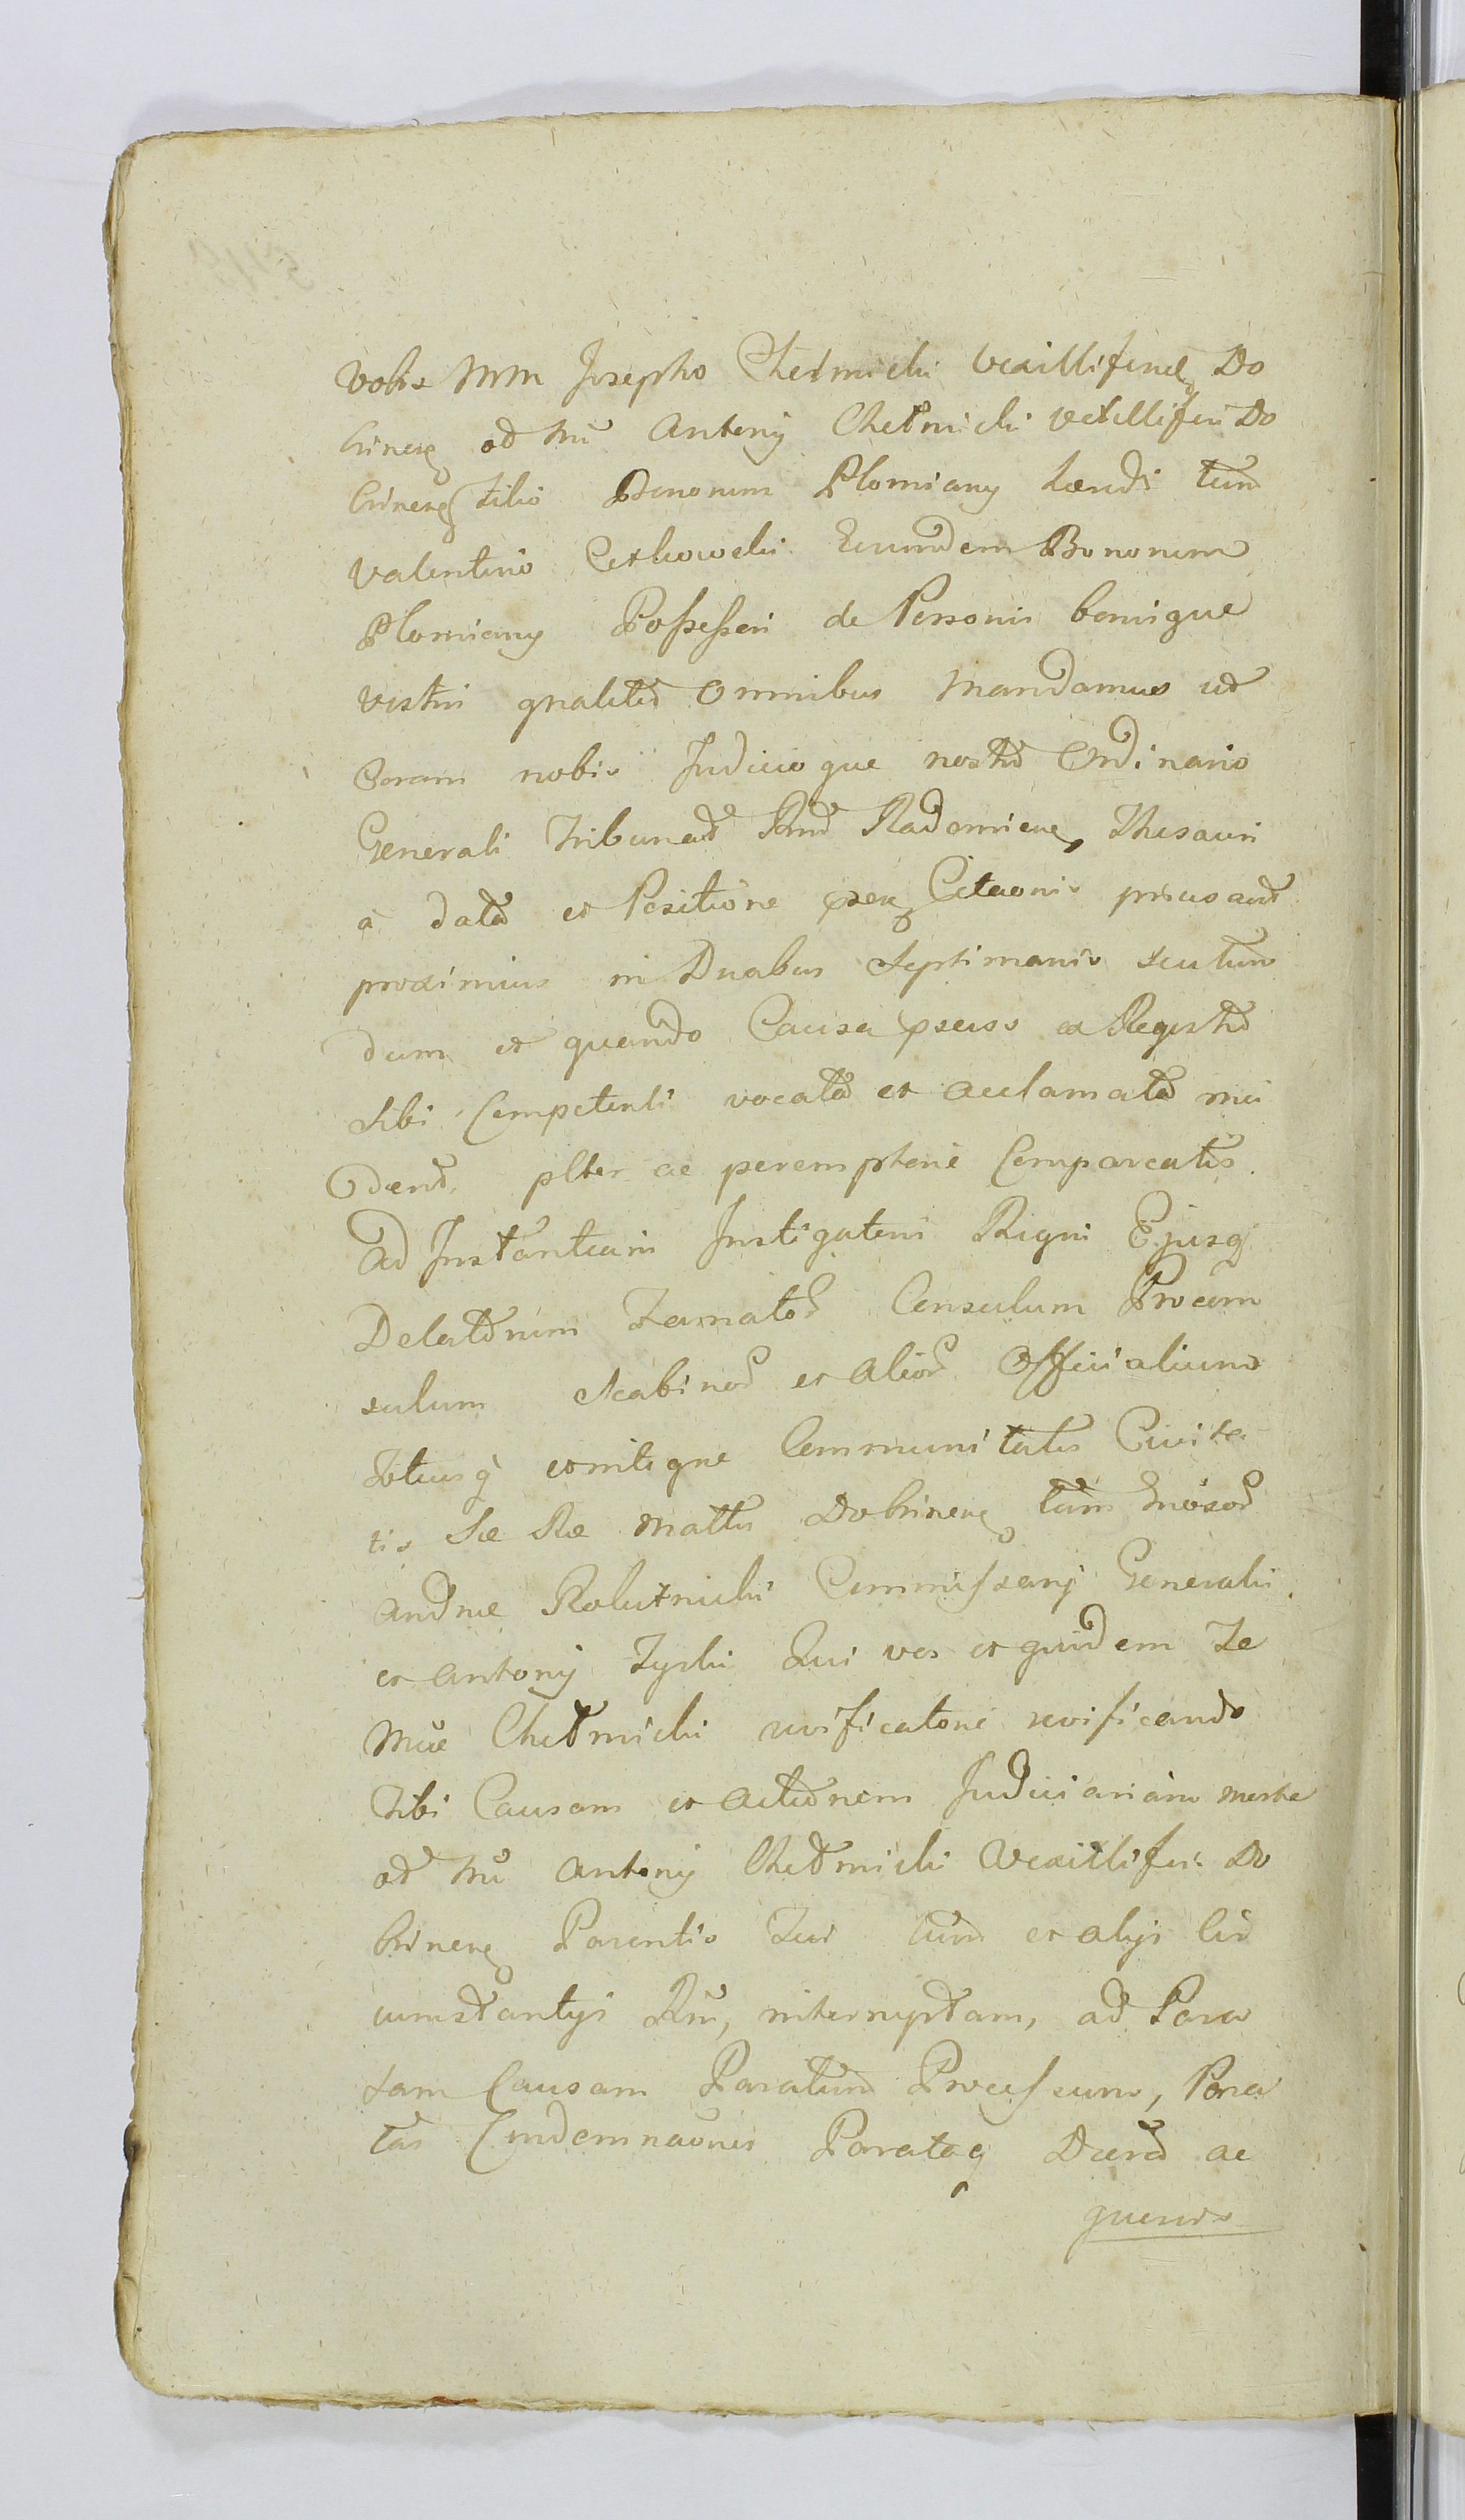 Vobis MM Josepho Chełmicki Vexillifend Do
brinens od Mu Antonij Chełmicki Vexilliferi Do
brinens Filio Bonorum Płomiany Hœredi tum
Valentino Eorumdem Bonorum
Płomiany Possessori de Personis bonisque
vestris gnaliter Omnibus Mandamus ut
Coram nobis Judicioque nostro Ordinario
Generali Tribunali Radomiens, Thesauri
a data et Positione psens Citaonis
proximius in Duabus Septimanis
dum et quando Causa psens ex Registro
Sibi Competenti vocata et acclamata
plter ac peremptorie Compareatis.
Ad Instantiam Instigatoris Regni Ejusq
Delatorum Consulum Procon
sulum Scabinor et Alior Officialium
Totiusq Communitatis Civita
tis Sæ Ræ Mattis Dobrinens tum Gnosor
Andræ Commissarij Generalis
et Antonij Zyski Qui vos et quidem Te
Mue Chełmicki
Tibi Causam et Actionem Judiciariam morte
od Mu Antonij Chełmicki Vexilliferi Do
brinens Parentis Tui tum et alijs Cir
cumstantijs interruptam, ad Para
tam Causam Paratum Processum, Para
tas Condemnaones Parataq ac